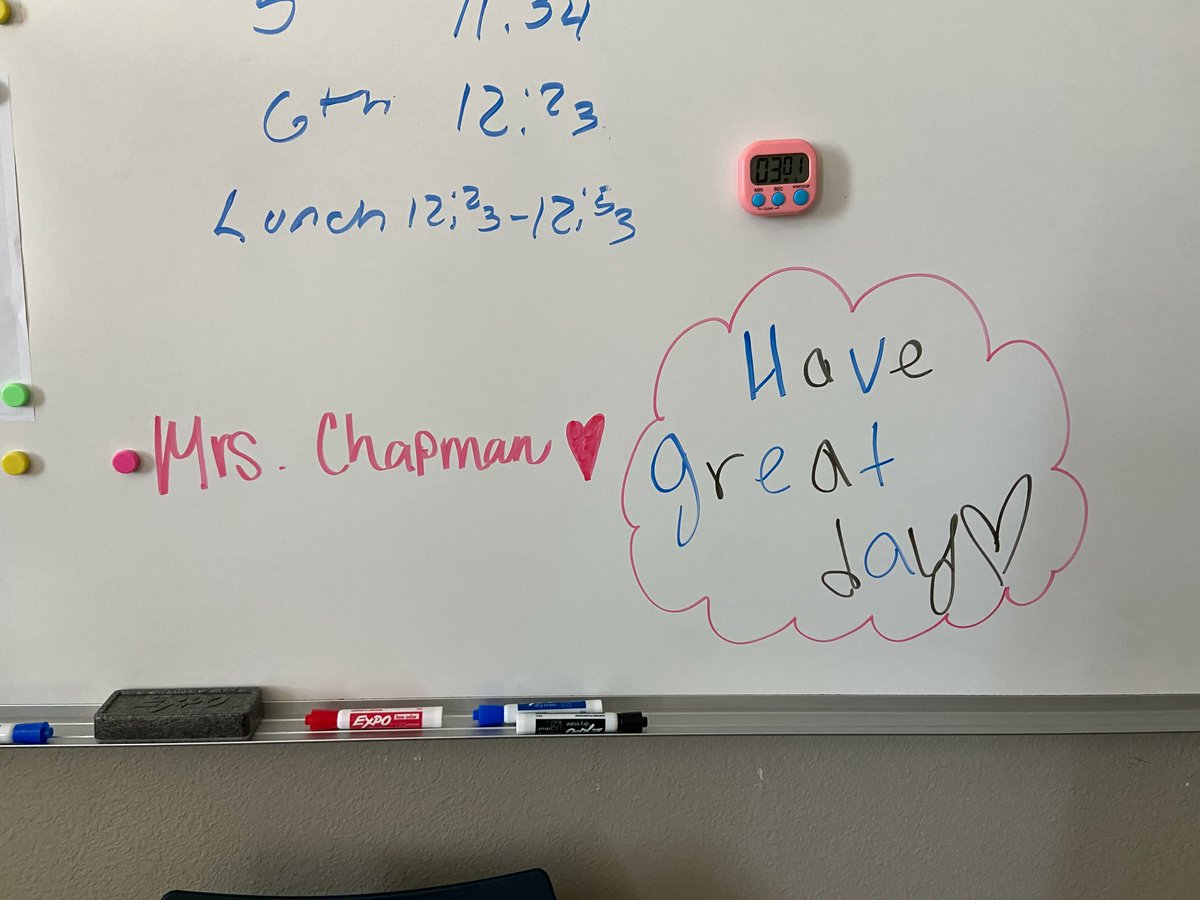 5 11:34
6th 12:23
Lunch 12:23-12:53
03 01
MIN SEC
Mrs. Chapman
Have
great
day
EXPO
EXPO